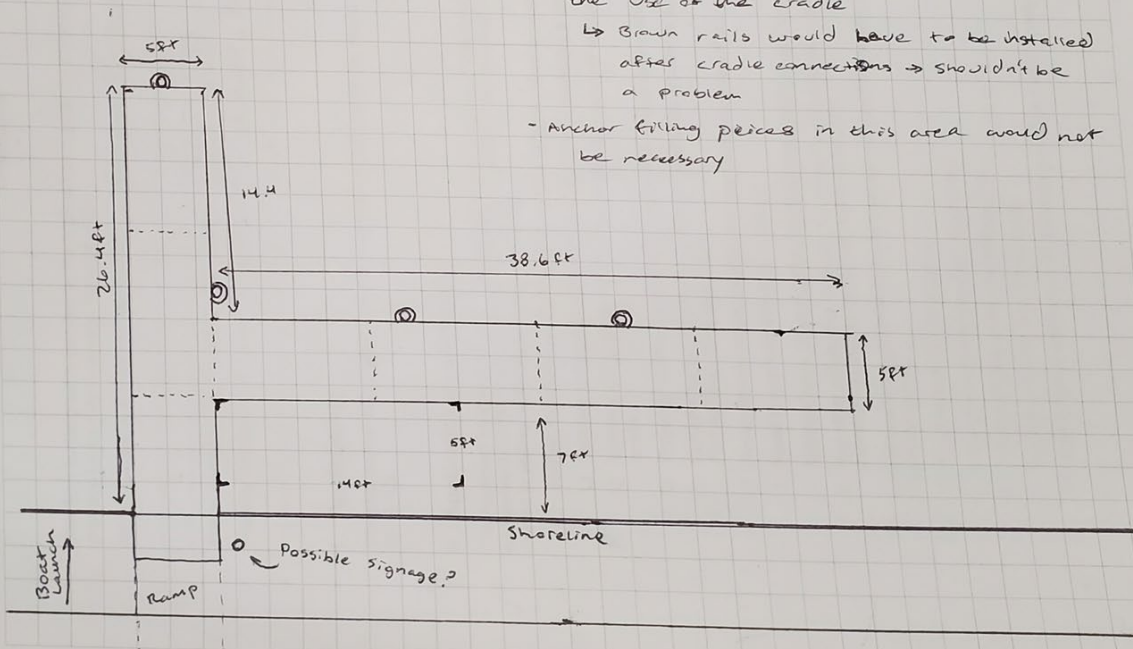 the use of the cradle
↳ Brown rails would have to be installed
after cradle connections → shouldn't be
a problem
- Anchor filling peices in this area would not
be necessary
5ft
14.4
26.4ft
38.6ft
5ft
5ft
7ft
14ft
Shoreline
Boat
Launch
Possible signage?
Ramp